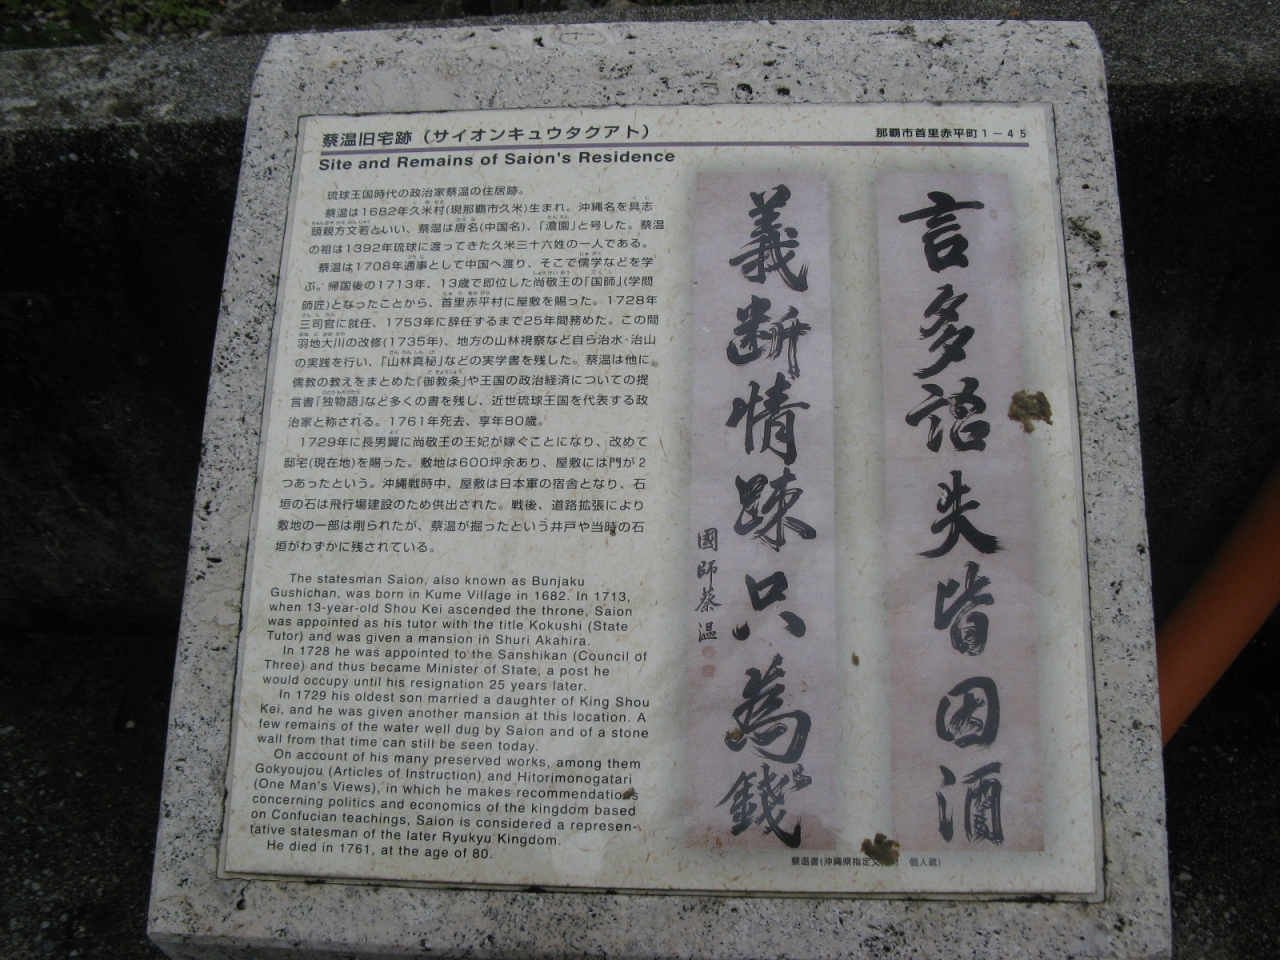 蔡温旧宅跡（サイオンキュウタクアト）
那覇市首里赤平町１－４５
Site and Remains of Saion's Residence
琉球王国時代の政治家蔡温の住居跡。
蔡温は1682年久米村(現那覇市久米)生まれ。沖縄名を具志
頭親方文若といい、蔡温は唐名(中国名)、「澹園」と号した。蔡温
の祖は1392年琉球に渡ってきた久米三十六姓の一人である。
蔡温は1708年通事として中国へ渡り、そこで儒学などを学
ぶ。帰国後の1713年、13歳で即位した尚敬王の「国師」(学問
師匠)となったことから、首里赤平村に屋敷を賜った。1728年
三司官に就任、1753年に辞任するまで25年間務めた。この間
羽地大川の改修(1735年)、地方の山林視察など自ら治水・治山
の実践を行い、「山林真秘」などの実学書を残した。蔡温は他に
儒教の教えをまとめた「御教条」や王国の政治経済についての提
言書「独物語」など多くの書を残し、近世琉球王国を代表する政
治家と称される。1761年死去、享年80歳。
1729年に長男翼に尚敬王の王妃が嫁ぐことになり、改めて
邸宅(現在地)を賜った。敷地は600坪余あり、屋敷には門が2
つあったという。沖縄戦時中、屋敷は日本軍の宿舎となり、石
垣の石は飛行場建設のため供出された。戦後、道路拡張により
敷地の一部は削られたが、蔡温が掘ったという井戸や当時の石
垣がわずかに残されている。
The statesman Saion, also known as Bunjaku
Gushichan, was born in Kume Village in 1682. In 1713,
when 13-year-old Shou Kei ascended the throne, Saion
was appointed as his tutor with the title Kokushi (State
Tutor) and was given a mansion in Shuri Akahira.
In 1728 he was appointed to the Sanshikan (Council of
Three) and thus became Minister of State, a post he
would occupy until his resignation 25 years later.
In 1729 his oldest son married a daughter of King Shou
Kei, and he was given another mansion at this location. A
few remains of the water well dug by Saion and of a stone
wall from that time can still be seen today.
On account of his many preserved works, among them
Gokyoujou (Articles of Instruction) and Hitorimonogatari
(One Man's Views), in which he makes recommendations
concerning politics and economics of the kingdom based
on Confucian teachings, Saion is considered a represen-
tative statesman of the later Ryukyu Kingdom.
He died in 1761, at the age of 80.
言多語失皆因酒
義断情疎只為錢
國師蔡温
蔡温書(沖縄県指定文 個人蔵)